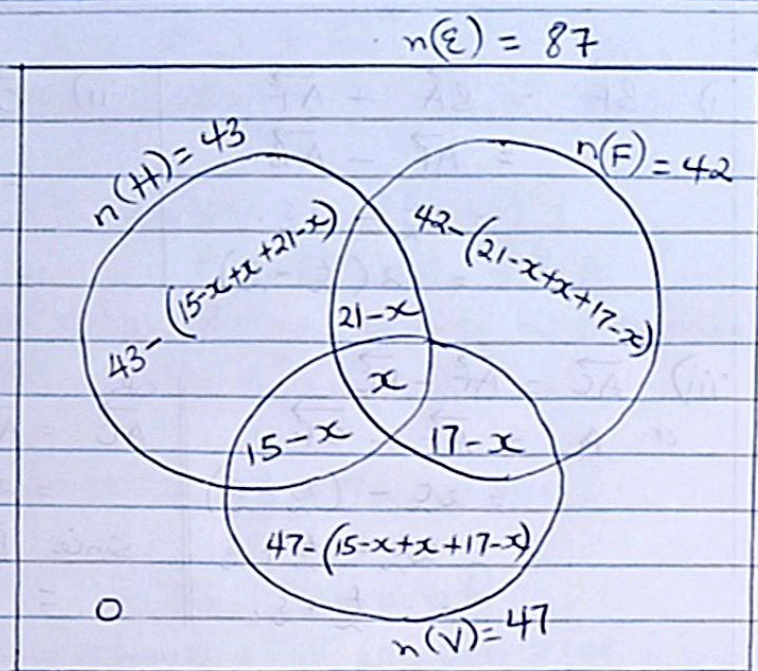 n(ℰ) = 87
n(H) = 43
n(F) = 42
43-(15-x+x+21-x)
42-(21-x+x+17-x)
21-x
x
15-x
17-x
47-(15-x+x+17-x)
0
n(V)=47